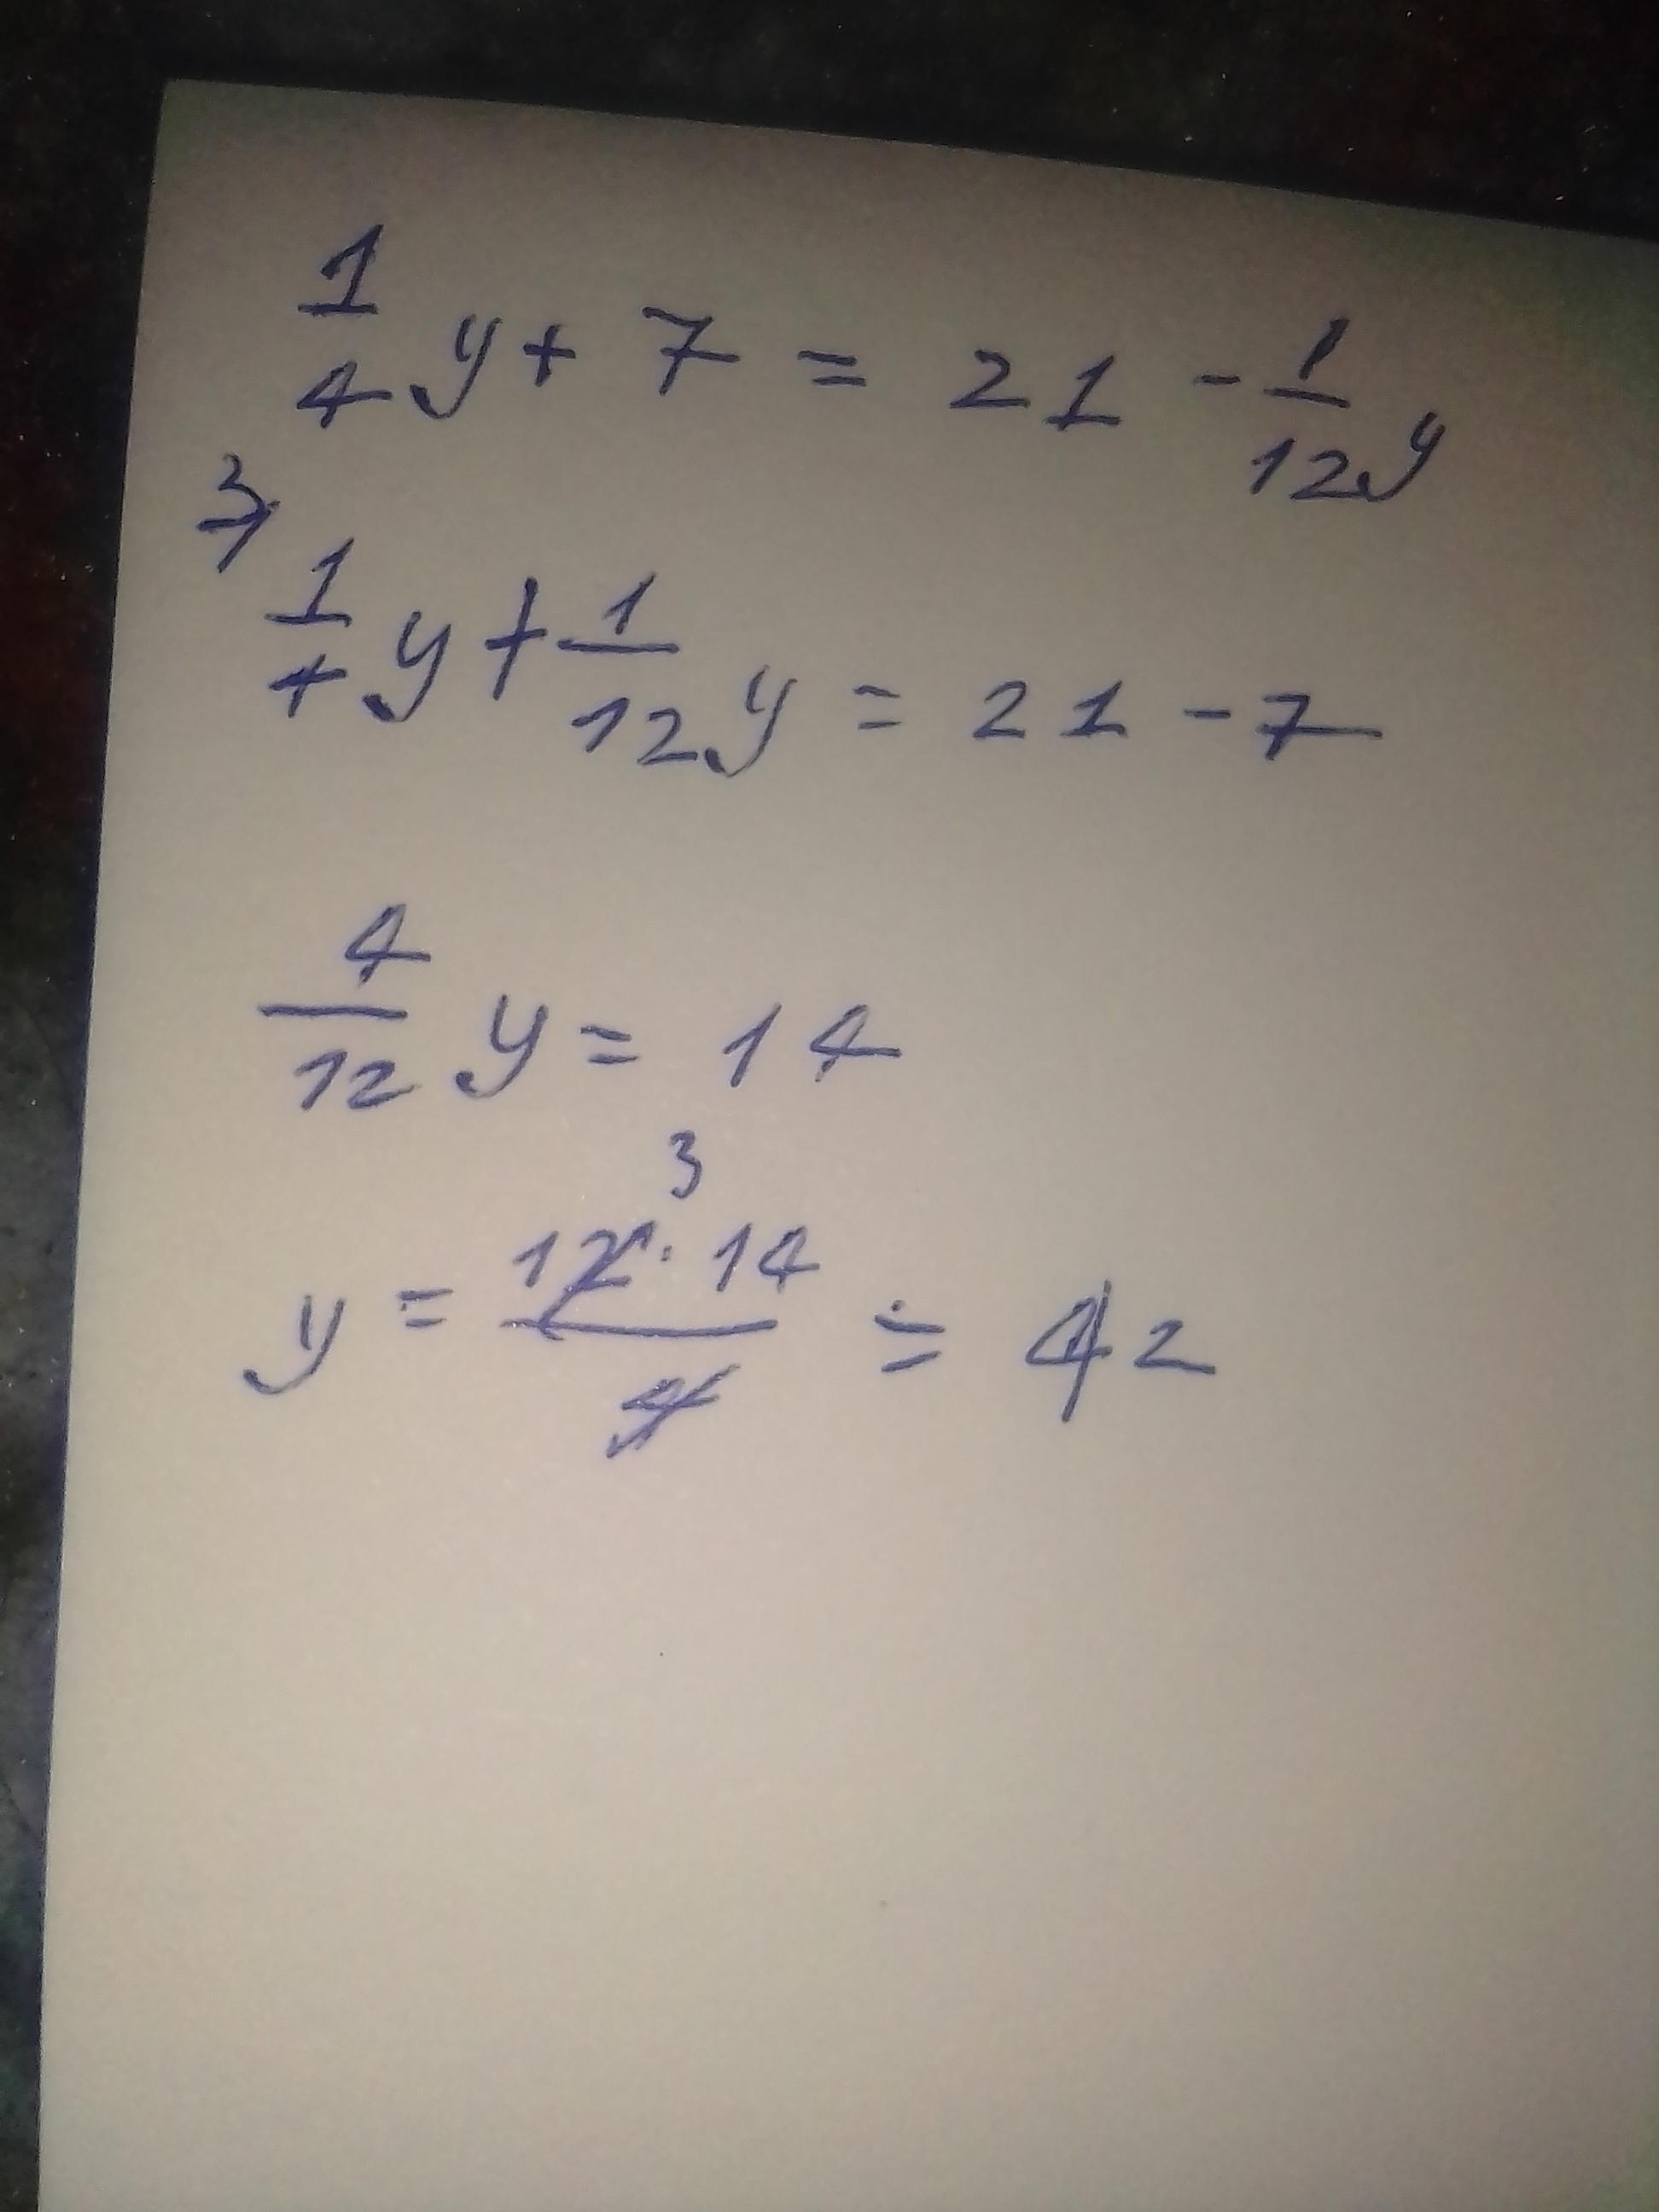 1/4 y + 7 = 21 - 1/12 y
3)
1/4 y + 1/12 y = 21 - 7
4/12 y = 14
3
y = 12 · 14 / 4 = 42